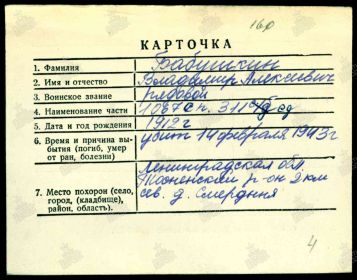 160
КАРТОЧКА
1. Фамилия Бабушкин
2. Имя и отчество Владимир Алексеевич
3. Воинское звание рядовой
4. Наименование части 1067 с.п. 311 сд
5. Дата и год рождения 1912 г
6. Время и причина вы-
бытия (погиб, умер
от ран, болезни) убит 14 февраля 1943 г
Ленинградская обл.
7. Место похорон (село, Тосненский р-он 2 км
город, (кладбище), сев. д. Смердыня
район, область).
4